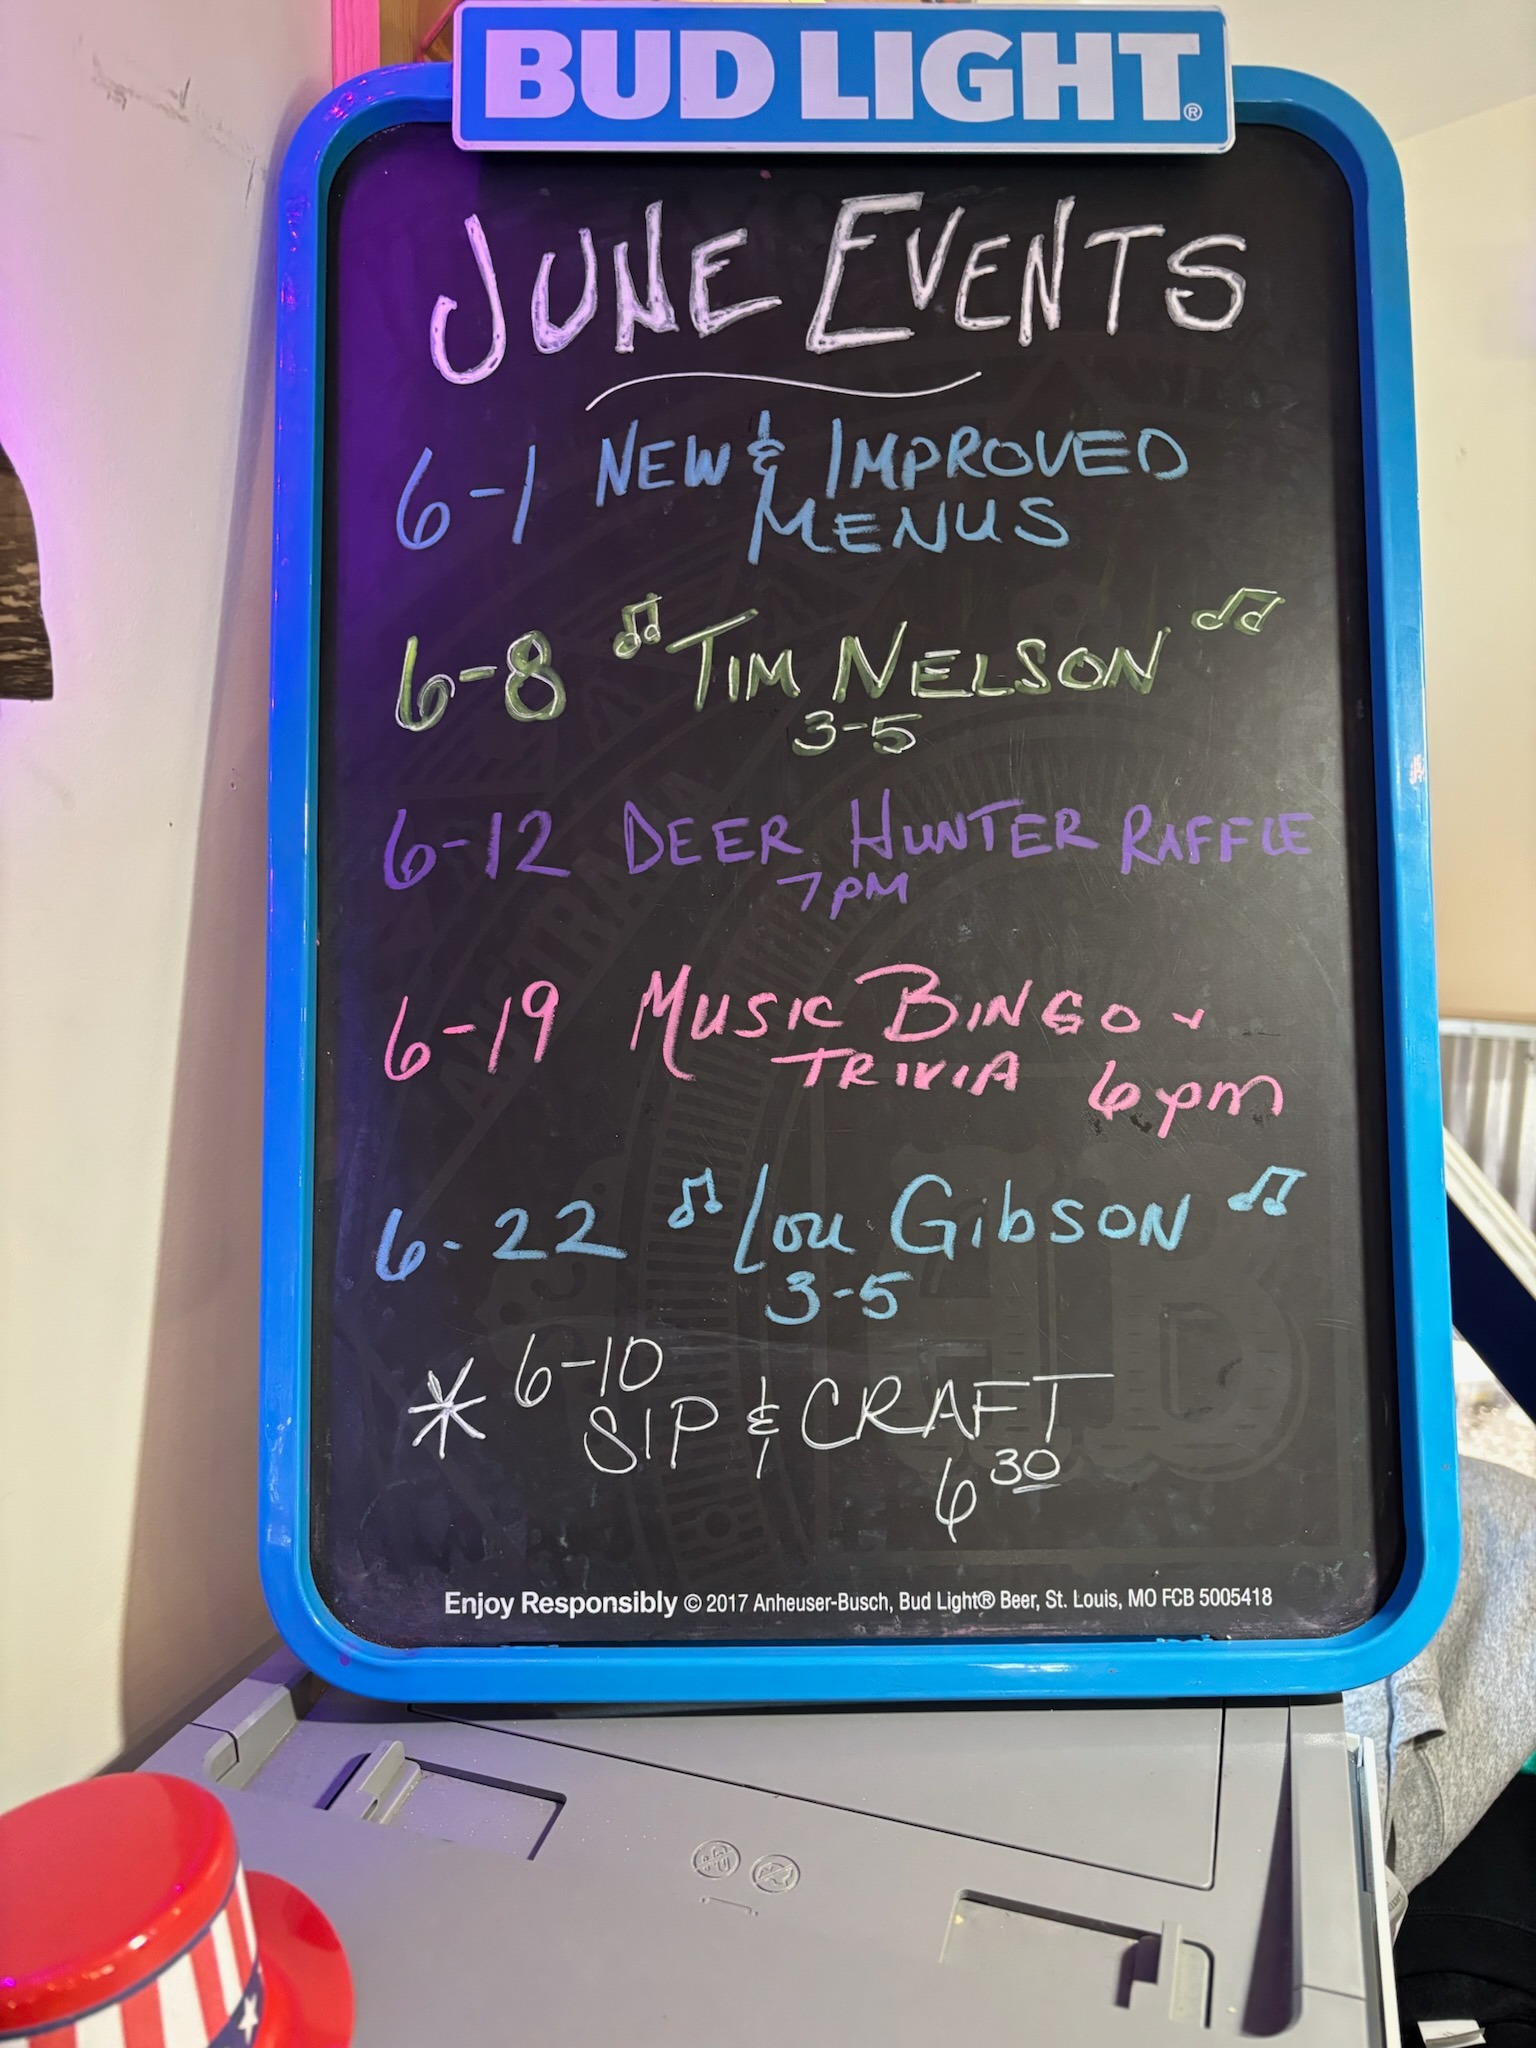 BUD LIGHT®
JUNE EVENTS
6-1 NEW & IMPROVED
MENUS
6-8 TIM NELSON
3-5
6-12 DEER HUNTER RAFFLE
7PM
6-19 MUSIC BINGO &
TRIVIA 6pm
6-22 Lou GibSON
3-5
* 6-10
SIP & CRAFT
6 30
Enjoy Responsibly © 2017 Anheuser-Busch, Bud Light® Beer, St. Louis, MO FCB 5005418